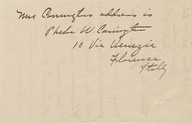 Mrs Carrington's address is
Phebe W. Carrington
10 Via Venezia
Florence
Italy